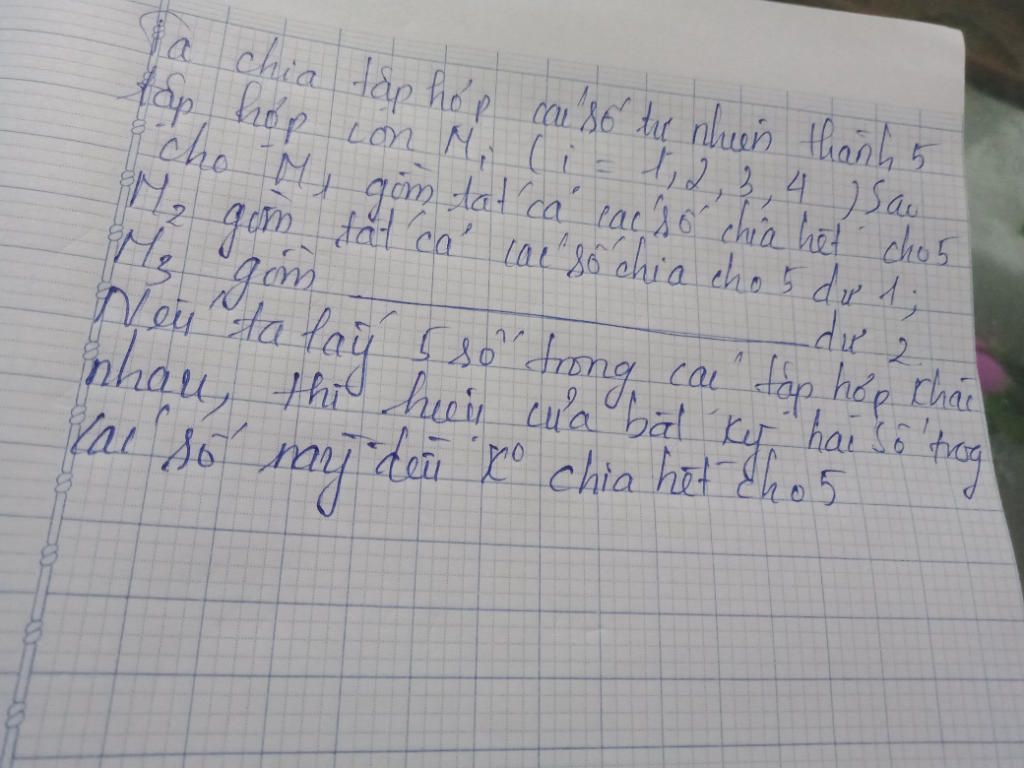 Ta chia tập hợp các số tự nhiên thành 5
tập hợp con Mi (i = 1, 2, 3, 4 ) Sao
cho M1 gồm tất cả các số chia hết cho 5
M2 gồm tất cả các số chia cho 5 dư 1;
M3 gồm ______ dư 2
Nếu ta lấy 5 số trong các tập hợp khác
nhau, thì hiệu của bất kỳ hai số trog
các số này đều ko chia hết cho 5